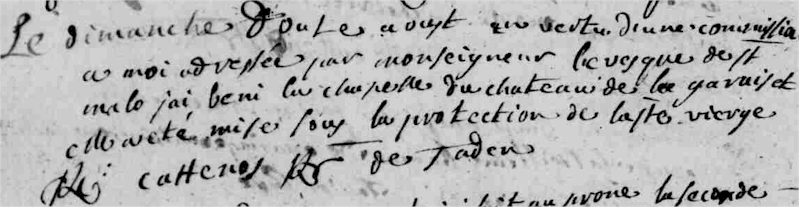 Le dimanche douze aoust en vertu d'une commission
a moi adressée par monseigneur levesque de st
malo jai beni la chapelle du chateau de la garais et
elle a eté mise sous la protection de laste vierge
cattenos de Taden
au prone la seconde